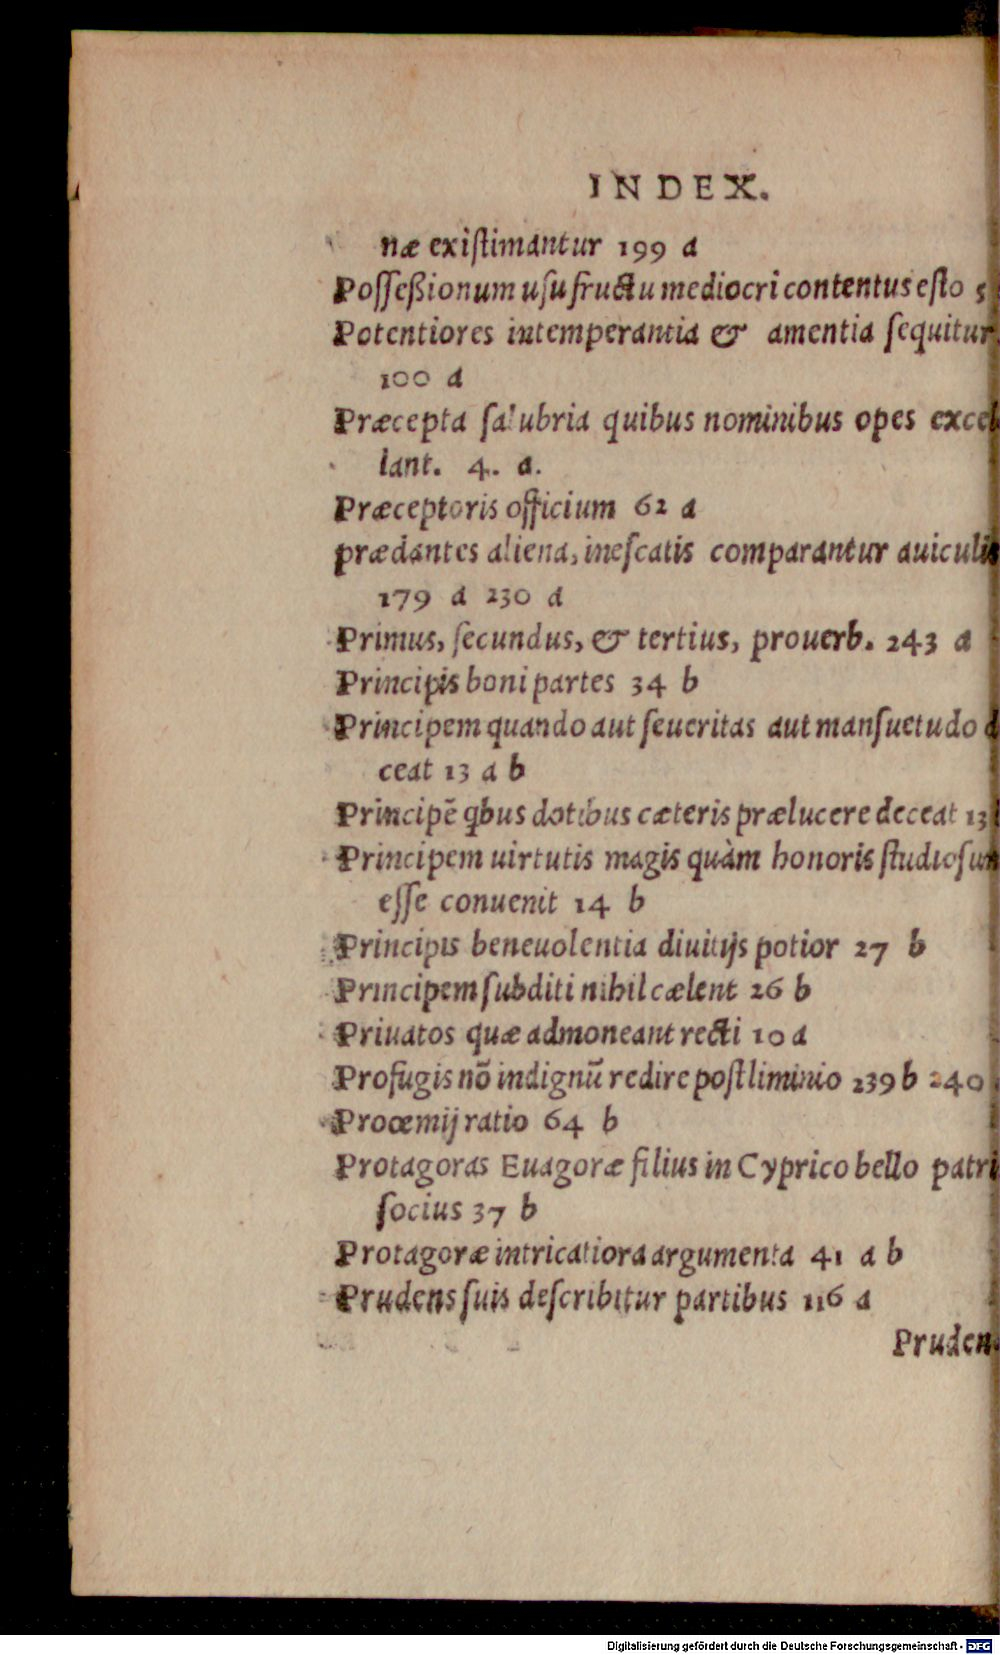 INDEX.
næ exiſtimantur 199 a
Poſſeßionum uſu fructu mediocri contentus eſto 5
Potentiores intemperantia & amentia ſequitur
100 a
Præcepta ſalubria quibus nominibus opes excel
lant. 4. a.
Præceptoris officium 62 a
prædantes aliena, ineſcatis comparantur auiculis
179 a 230 a
Primus, ſecundus, & tertius, prouerb. 243 a
Principis boni partes 34 b
Principem quando aut ſeueritas aut manſuetudo d
ceat 13 a b
Principē qbus dotibus cæteris prælucere deceat 13
Principem uirtutis magis quàm honoris ſtudioſum
eſſe conuenit 14 b
Principis beneuolentia diuitijs potior 27 b
Principem ſubditi nihil cælent 26 b
Priuatos quæ admoneant recti 10 a
Profugis nō indignū redire poſtliminio 239 b 240
Proœmij ratio 64 b
Protagoras Euagoræ filius in Cyprico bello patri
ſocius 37 b
Protagoræ intricatiora argumenta 41 a b
Prudens ſuis deſcribitur partibus 116 a
Pruden-
Digitalisierung gefördert durch die Deutsche Forschungsgemeinschaft - DFG